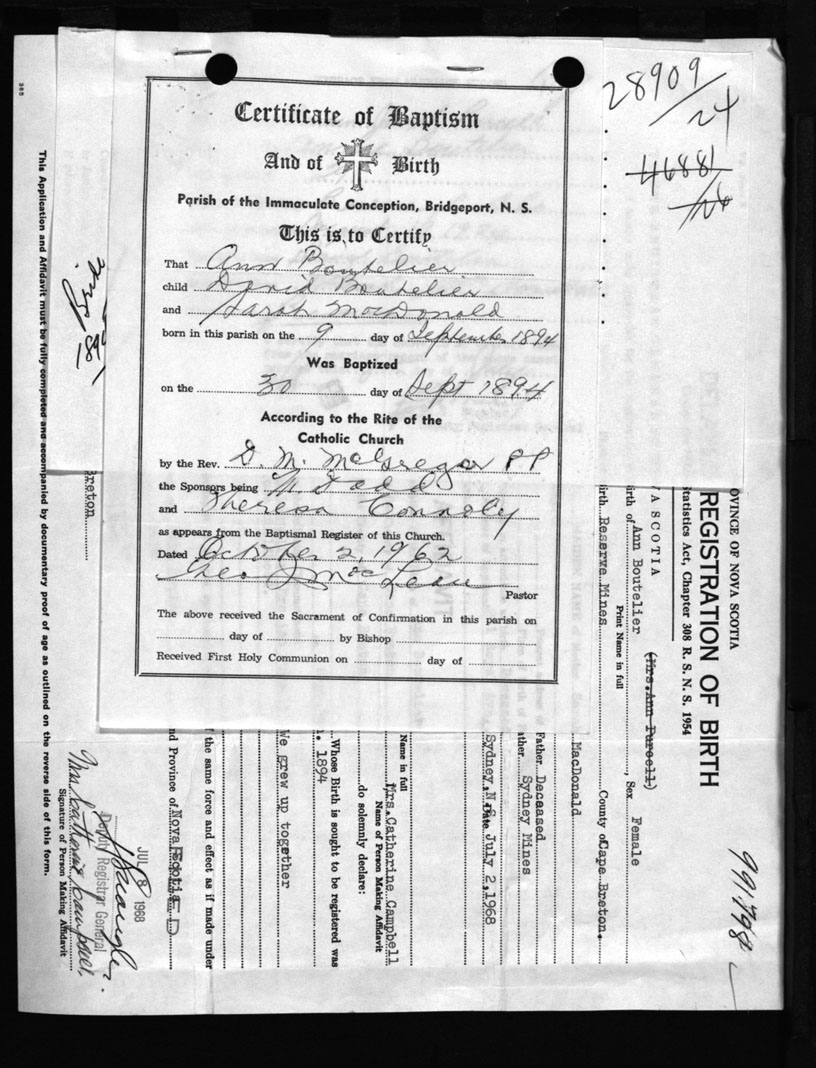 28909
/24
46881
/24
Certificate of Baptism
And of Birth
Parish of the Immaculate Conception, Bridgeport, N. S.
This is to Certify
That Ann Boutelier
child David Boutelier
and Sarah MacDonald
born in this parish on the 9 day of September 1894
Was Baptized
on the 30 day of Sept 1894
According to the Rite of the
Catholic Church
by the Rev. D. M. McGregor PP
the Sponsors being
and Theresa Connoly
as appears from the Baptismal Register of this Church.
Dated October 2, 1962
Geo J MacLean
Pastor
The above received the Sacrament of Confirmation in this parish on
day of by Bishop
Received First Holy Communion on day of
OVINCE OF NOVA SCOTIA
REGISTRATION OF BIRTH
tatistics Act, Chapter 308 R. S. N. S. 1954
A SCOTIA
irth of Ann Boutelier (Mrs. Ann Purcell), Sex Female
Print Name in full
irth Reserve Mines County of Cape Breton.
MacDonald
Father Deceased
ather Sydney Mines
Sydney, N.S. Date July 2, 1968
Name in full Mrs. Catherine Campbell
Name of Person Making Affidavit
do solemnly declare:
Whose Birth is sought to be registered was
1894
We grew up together
f the same force and effect as if made under
nd Province of Nova Scotia
JUL 8 1968
Deputy Registrar General
Mrs Katherine Campbell
Signature of Person Making Affidavit
Breton
This Application and Affidavit must be fully completed and accompanied by documentary proof of age as outlined on the reverse side of this form.
991798